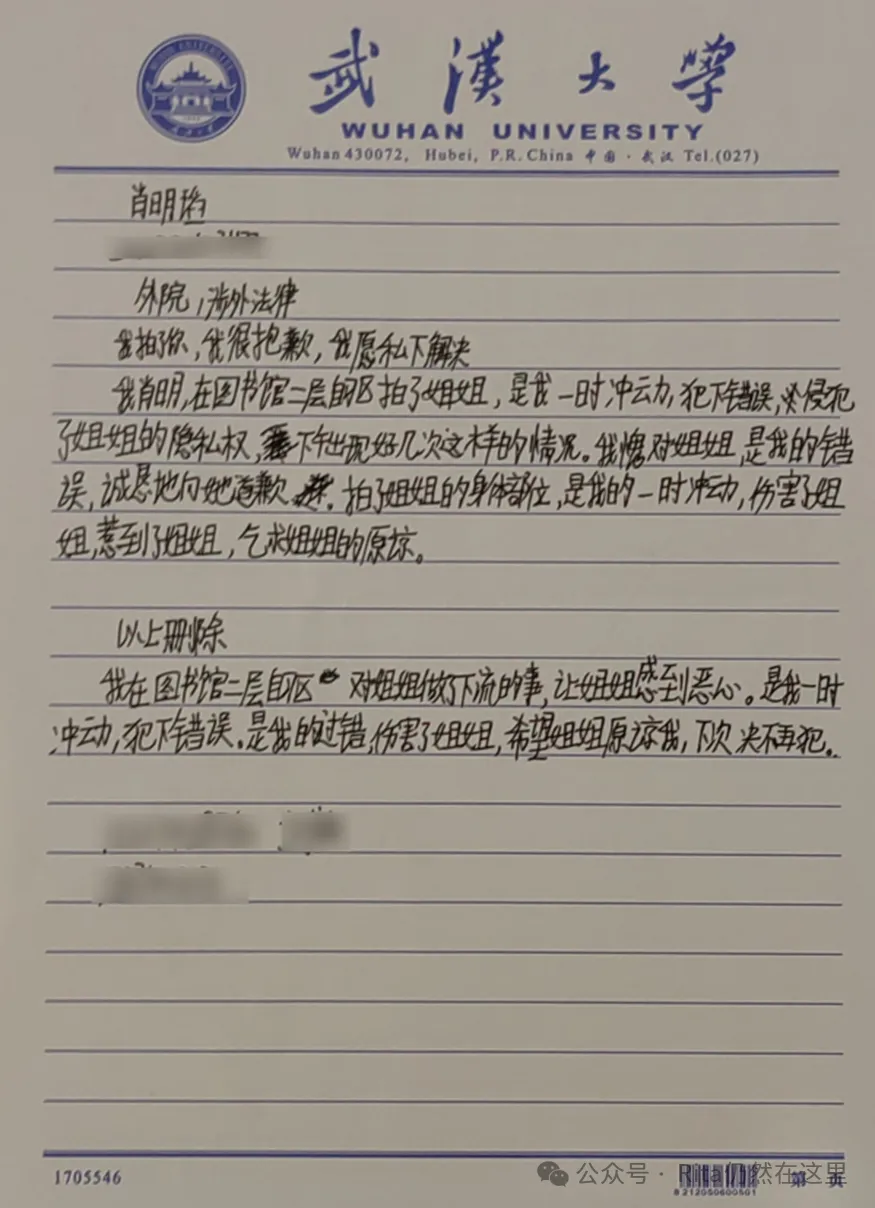 武漢大學
WUHAN UNIVERSITY
Wuhan 430072, Hubei, P.R. China 中国·武汉 Tel.(027)
肖明
外院,涉外法律
我拍了你,我很抱歉,我愿私下解决
我肖明,在图书馆二层自习区拍了姐姐,是我一时冲动,犯下错误,侵犯
了姐姐的隐私权,下午出现好几次这样的情况。我愧对姐姐,是我的错
误,诚恳地向她道歉。拍了姐姐的身体部位,是我的一时冲动,伤害了姐
姐,惹到了姐姐,乞求姐姐的原谅。
以上删除
我在图书馆二层自习区对姐姐做了下流的事,让姐姐感到恶心。是我一时
冲动,犯下错误。是我的过错,伤害了姐姐,希望姐姐原谅我,下次决不再犯。
1705546
公众号·Rita仍然在这里
8 212050600501
第 页